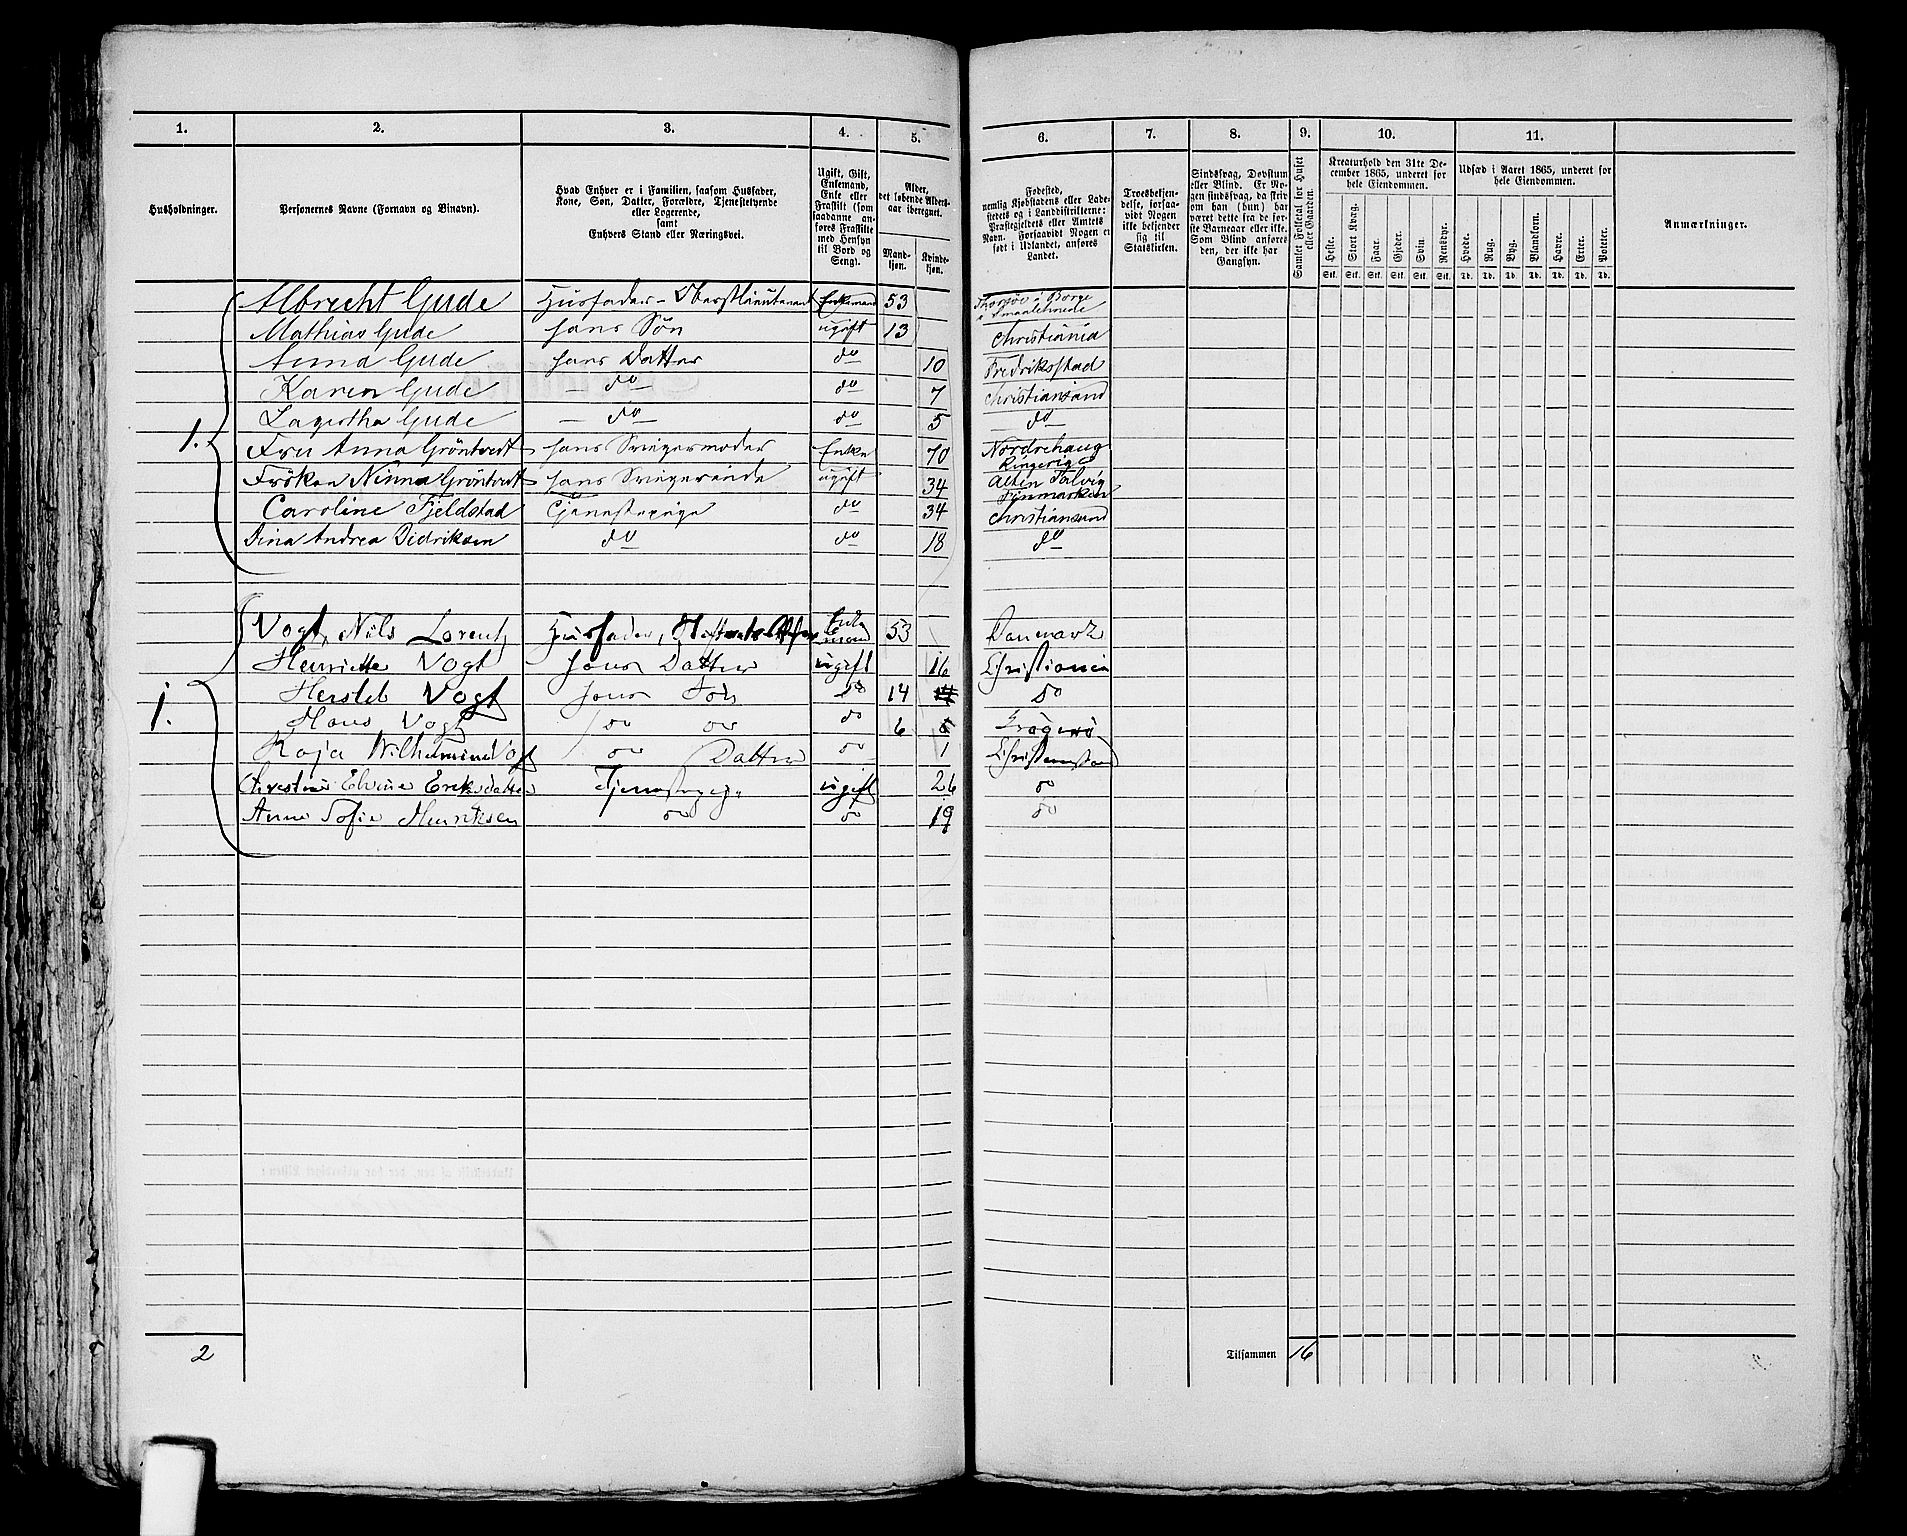 1. 2. 3. 4. 5. 6. 7. 8. 9. 10. 11.
Husholdninger.
Personernes Navne (Fornavn og Binavn).
Hvad Enhver er i Familien, saasom Husfader,
Kone, Søn, Datter, Forældre, Tjenestetyende
eller Logerende,
samt
Enhvers Stand eller Næringsvei.
Ugift, Gift,
Enkemand,
Enke eller
Fraskilt (som
saadanne an-
føres Fraskilte
med Hensyn
til Bord og
Seng).
Alder,
det løbende Alders-
aar iberegnet.
Mand-
kjøn.
Kvinde-
kjøn.
Fødested,
nemlig Kjøbstadens eller Lade-
stedets og i Landdistrikterne:
Præstegjeldets eller Amtets
Navn. Forsaavidt Nogen er
født i Udlandet, anføres
Landet.
Troesbekjen-
delse, forsaa-
vidt Nogen
ikke bekjender
sig til
Statskirken.
Sindssvag, Døvstum
eller Blind. Er No-
gen sindssvag, da skriv
om han (hun) har
været dette fra de før-
ste Barneaar eller ikke.
Som Blind anføres
den, der ikke har
Gangsyn.
Samlet Folketal for Huset
eller Gaarden.
Kreaturhold den 31te De-
cember 1865, underet for
hele Eiendommen.
Heste. Stort Kvæg. Faar. Gjeder. Svin. Rensdyr.
Stk. Stk. Stk. Stk. Stk. Stk.
Udsæd i Aaret 1865, underet for
hele Eiendommen.
Hvede. Rug. Byg. Blandkorn. Havre. Erter. Poteter.
Td. Td. Td. Td. Td. Td. Td.
Anmærkninger.
Albrecht Gude Husfader - Oberstlieutenant Enkemand 53 Borge
Smaalenene
Mathias Gude hans Søn ugift 13 Christiania
Anna Gude hans Datter do 10 Fredriksstad
Karen Gude - do - do 7 Christiansand
Lagertha Gude - do - do 5 - do -
1. Fru Anna Gröntvedt hans Svigermoder Enke 70 Nordrehaug
Ringerige
Fröken Ninna Gröntvedt hans Svigerinde ugift 34 Alten Talvig
Finmarken
Caroline Fjeldstad Tjenestepige do 34 Christiansand
Dina Andrea Didriksen do do 18 do
Vogt, Nils Lorentz Husfader, Enke
mand 53 Danmark
Henriette Vogt hans Datter ugift 16 Christiania
Hersleb Vogt hans Søn do 14 do
1. Hans Vogt do do do 6 Kragerø
Kaja Wilhelmine Vogt do Datter do 1 Christianssand
Elvine Eriksdatter Tjenestepige ugift 26 do
Anne Sofie Henriksen do do 19 do
2 Tilsammen 16